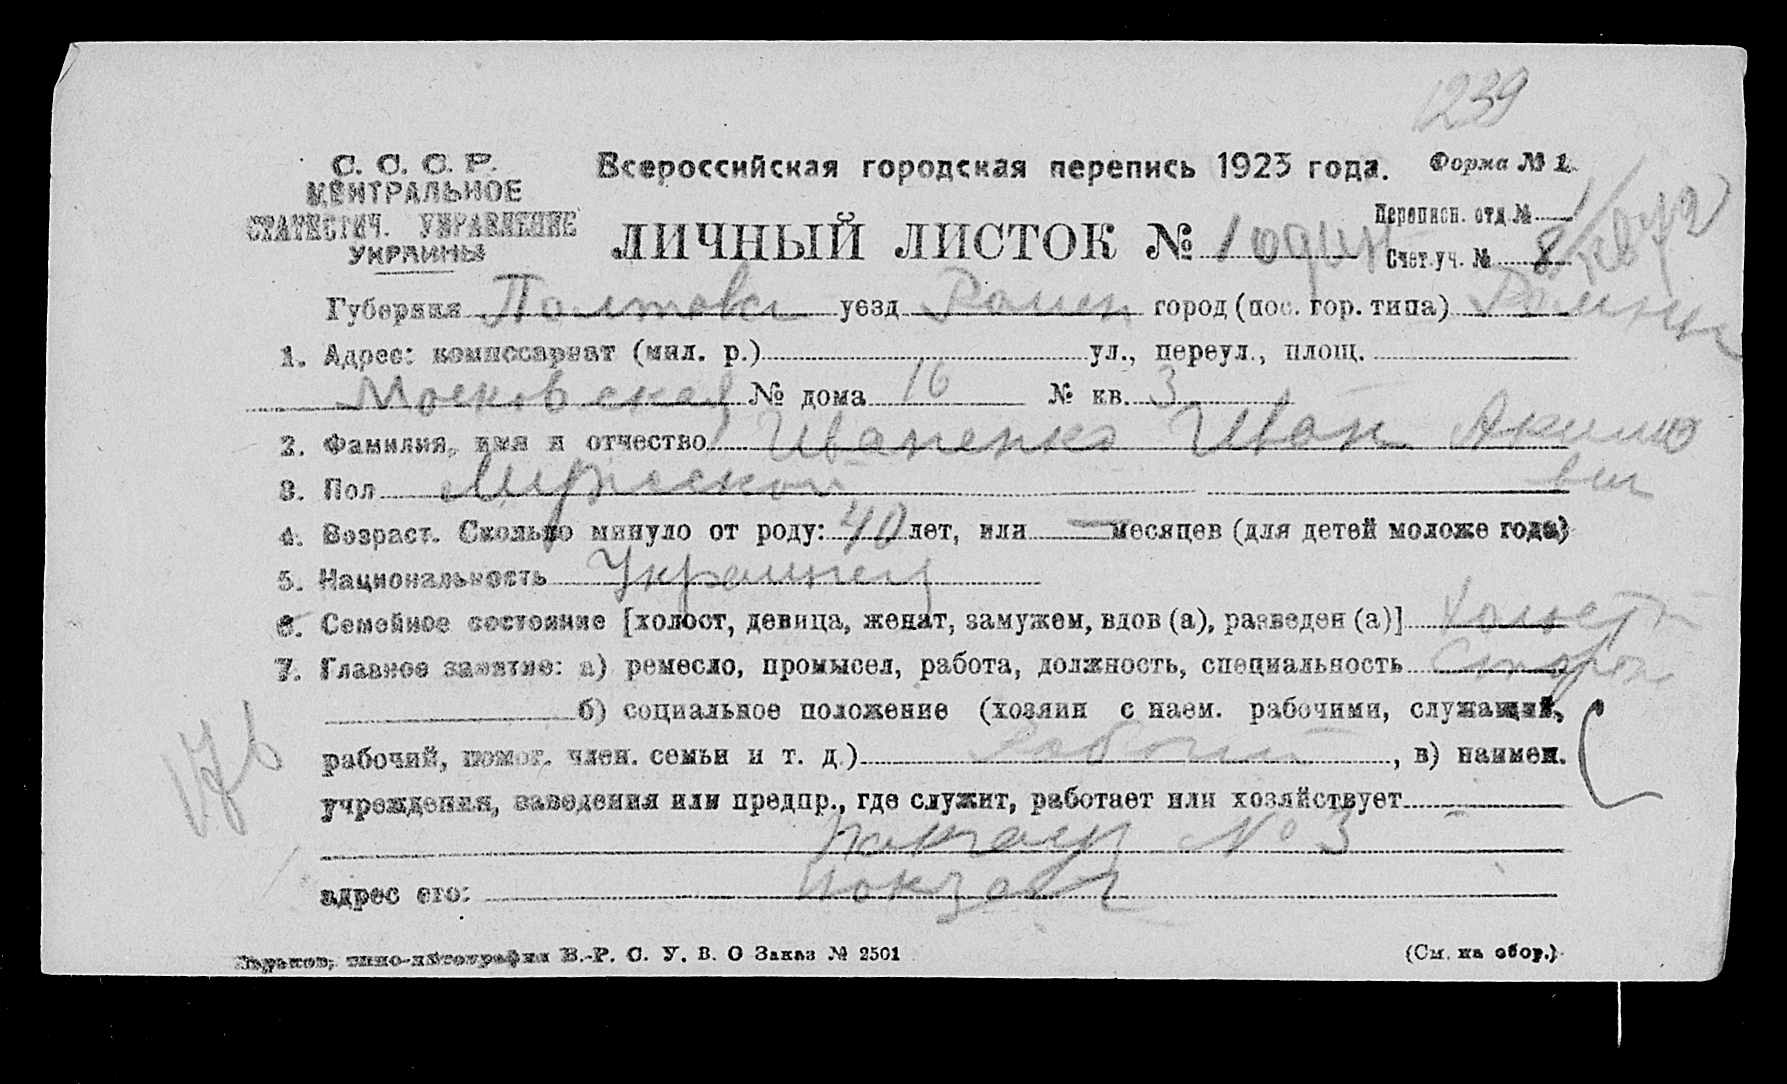 1239
С. С. С. Р.
ЦЕНТРАЛЬНОЕ
СТАТИСТИЧ. УПРАВЛЕНИЕ
УКРАИНЫ
Всероссийская городская перепись 1923 года.
Форма № 1.
ЛИЧНЫЙ ЛИСТОК № 1 один
Переписн. отд. № 1
Счет. уч. № 8
Губерния Полтавск уезд Ромен город (пос. гор. типа) Ромны
1. Адрес: комиссариат (мил. р.) ул., переул., площ.
Московская № дома 16 № кв. 3
2. Фамилия, имя и отчество Иваненко Иван Акимо
вич
3. Пол Мужской
4. Возраст. Сколько минуло от роду: 40 лет, или — месяцев (для детей моложе года)
5. Национальность Украинец
6. Семейное состояние [холост, девица, женат, замужем, вдов (а), разведен (а)] холост
7. Главное занятие: а) ремесло, промысел, работа, должность, специальность Сторож
б) социальное положение (хозяин с наем. рабочими, служащий,
рабочий, помог. член. семьи и т. д.) Рабочий, в) наимен.
учреждения, заведения или предпр., где служит, работает или хозяйствует
№ 3
адрес его:
176
Харьков, типо-литография В.-Р. С. У. В. О Заказ № 2501
(См. на обор.)